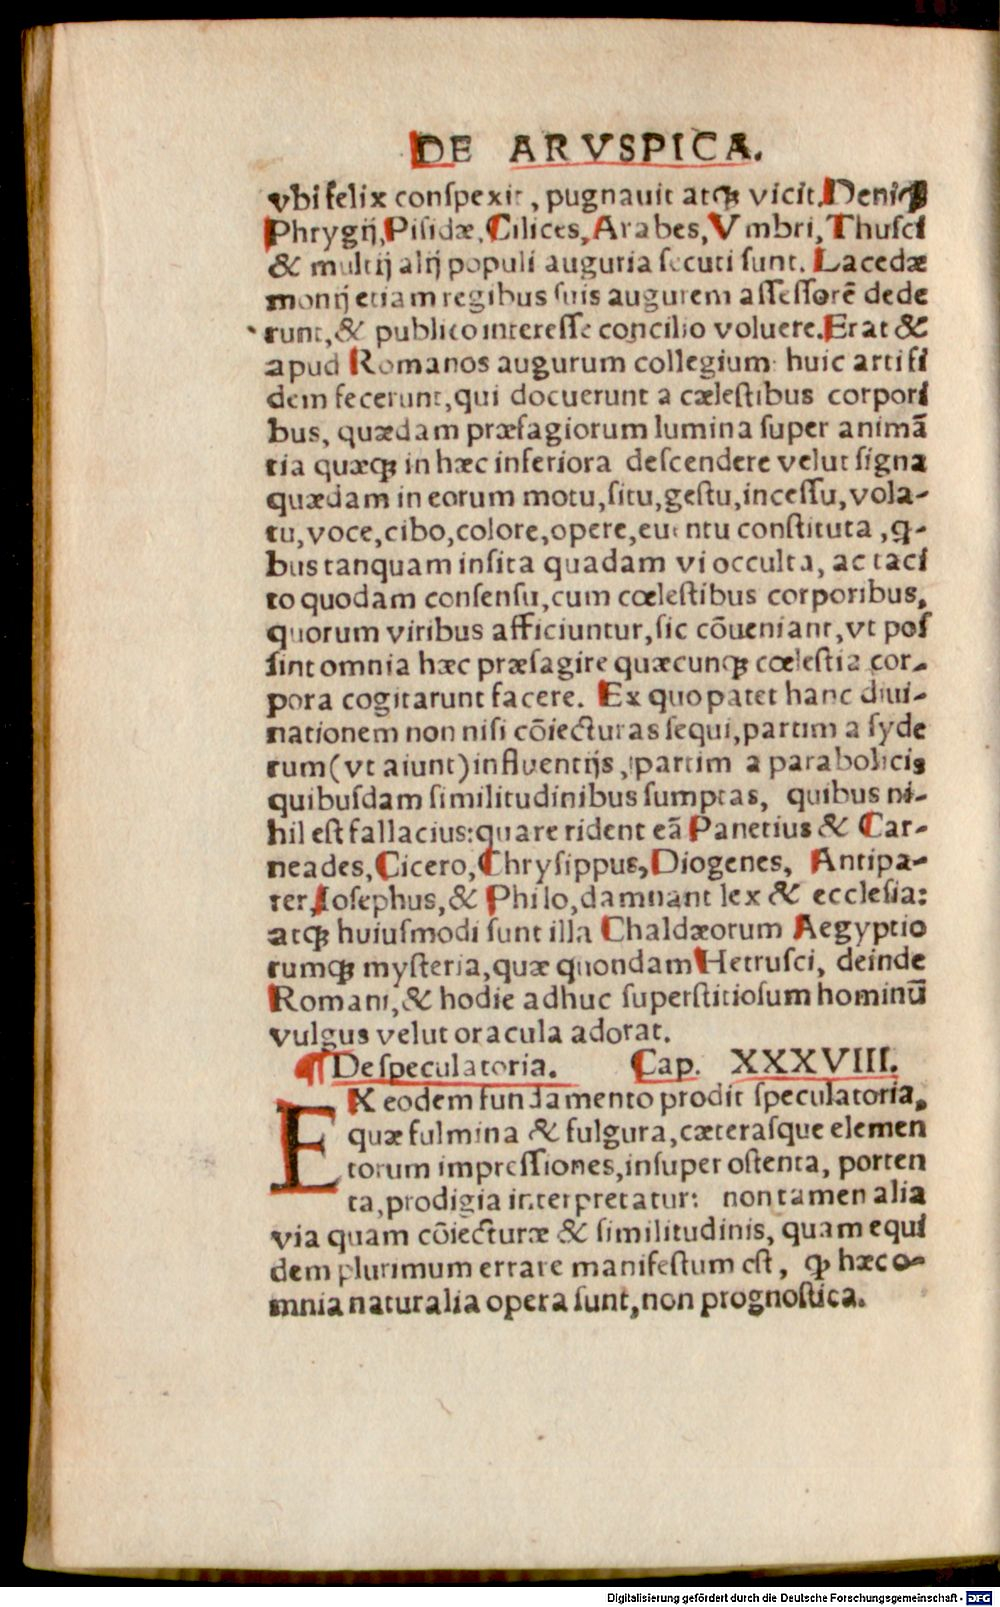 DE ARVSPICA.
vbi felix conſpexit, pugnauit atqꝫ vicit. Deniqꝫ
Phrygij, Piſidæ, Cilices, Arabes, Vmbri, Thuſci
& multij alij populi auguria ſecuti ſunt. Lacedæ
monij etiam regibus ſuis augurem aſſeſſorē dede
runt, & publico intereſſe concilio voluere. Erat &
apud Romanos augurum collegium: huic arti fi
dem fecerunt, qui docuerunt a cæleſtibus corpori
bus, quædam præſagiorum lumina ſuper animā
tia quæqꝫ in hæc inferiora deſcendere velut ſigna
quædam in eorum motu, ſitu, geſtu, inceſſu, vola-
tu, voce, cibo, colore, opere, euentu conſtituta, ꝗ-
bus tanquam inſita quadam vi occulta, ac taci
to quodam conſenſu, cum cœleſtibus corporibus,
quorum viribus afficiuntur, ſic cōueniant, vt poſ
ſint omnia hæc præſagire quæcunqꝫ cœleſtia cor-
pora cogitarunt facere. Ex quo patet hanc diui-
nationem non niſi cōiecturas ſequi, partim a ſyde
rum (vt aiunt) influentijs, partim a parabolicis
quibuſdam ſimilitudinibus ſumptas, quibus ni-
hil eſt fallacius: quare rident eā Panetius & Car-
neades, Cicero, Chryſippus, Diogenes, Antipa-
ter, Ioſephus, & Philo, damnant lex & eccleſia:
atqꝫ huiuſmodi ſunt illa Chaldæorum Aegyptio
rumqꝫ myſteria, quæ quondam Hetruſci, deinde
Romani, & hodie adhuc ſuperſtitioſum hominū
vulgus velut oracula adorat.
¶ De ſpeculatoria. Cap. XXXVIII.
EX eodem fundamento prodit ſpeculatoria,
quæ fulmina & fulgura, cæteraſque elemen
torum impreſſiones, inſuper oſtenta, porten
ta, prodigia interpretatur: non tamen alia
via quam cōiecturæ & ſimilitudinis, quam equi
dem plurimum errare manifeſtum eſt, ꝙ hæc o-
mnia naturalia opera ſunt, non prognoſtica.
Digitalisierung gefördert durch die Deutsche Forschungsgemeinschaft - DFG